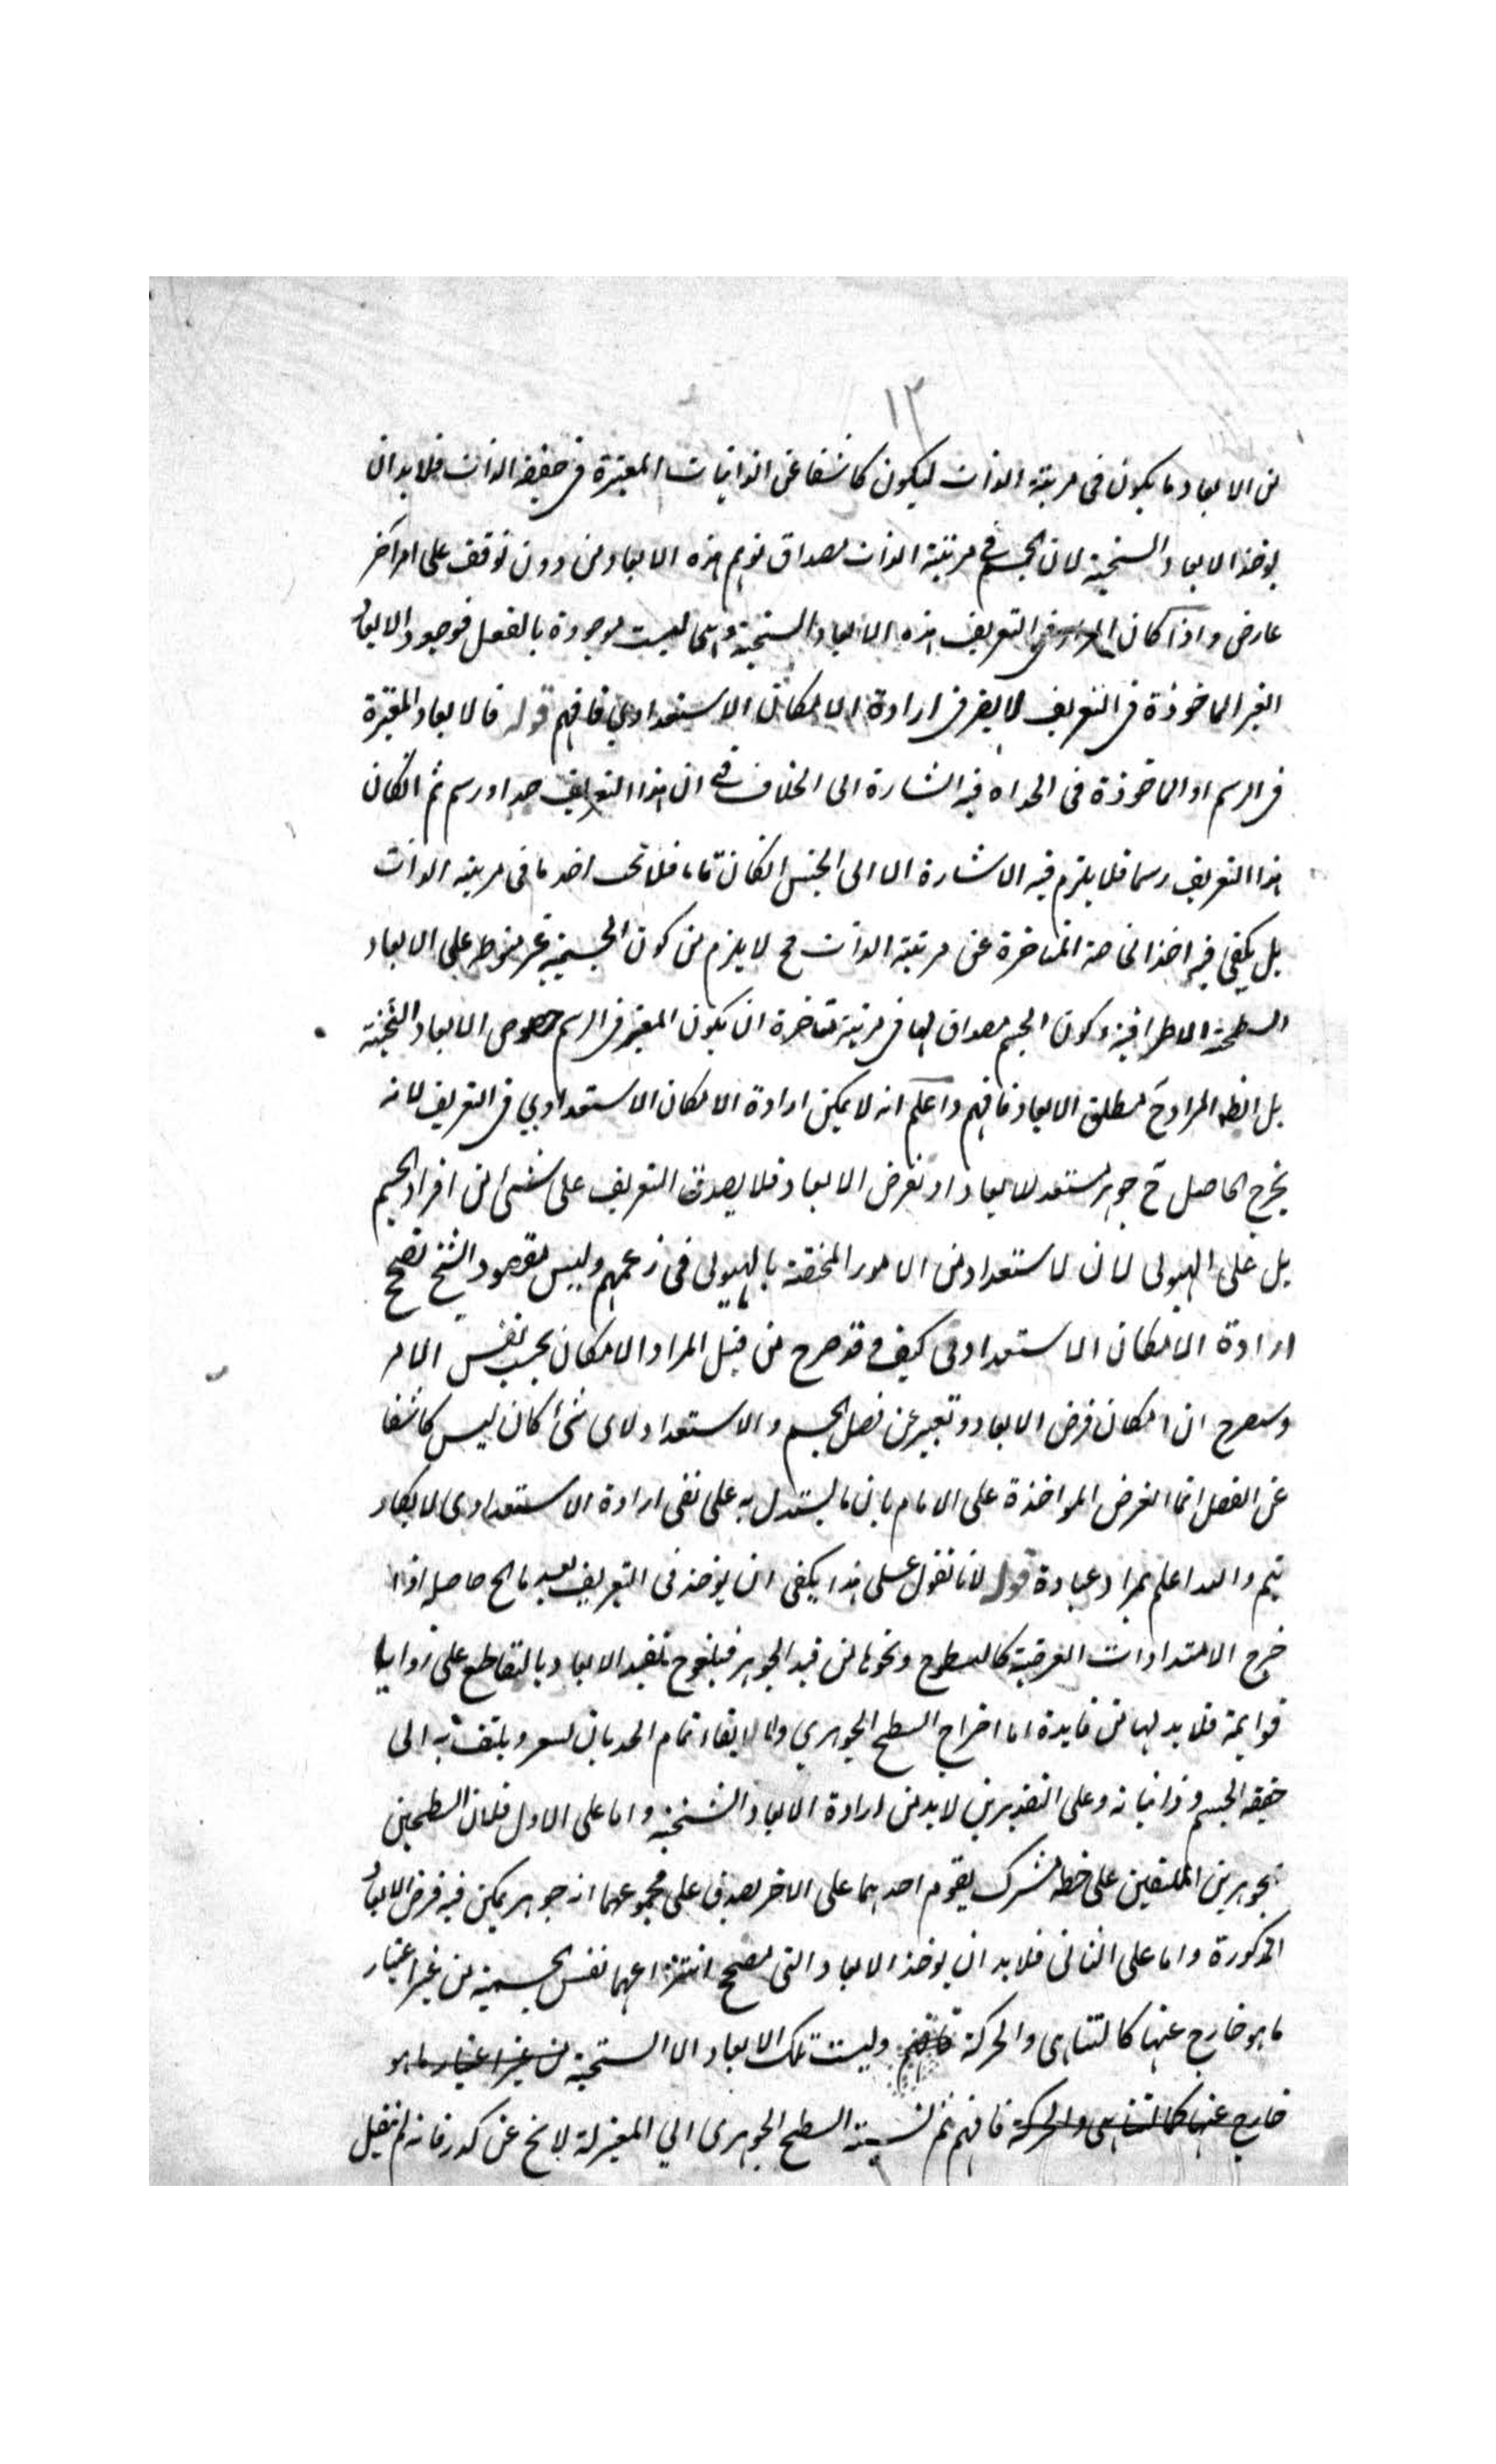 ١٣
من الابعاد ما يكون فى مرتبة الذات ليكون كاشفا عن الذاتيات المعتبرة فى حقيقة الذات فلا بد ان
يوخذ الابعاد السخنية لان الجسم فى مرتبة الذات مصداق توهم هذه الابعاد من دون توقف على امر آخر
عارض واذا كان المراد فى التعريف هذه الابعاد السخنية وانها ليست موجودة بالفعل فوجود الابعاد
الغير الماخوذة فى التعريف لا يضر فى ارادة الامكان الاستعدادي فافهم قوله فالابعاد المعتبرة
فى الرسم او الماخوذة فى الحد اه فيه اشارة الى الخلاف فى ان هذا التعريف حد او رسم ثم انكان
هذا التعريف رسما فلا يلزم فيه الاشارة الا الى الجنس انكان تاما فلا اخذ ما فى مرتبة الذات
بل يكفى فيه اخذ الخاصة المتاخرة عن مرتبة الذات فح لا يلزم من كون الجسمية غير على الابعاد
السطحية الاطرافية وكون الجسم مصداق لها فى مرتبة متاخرة ان يكون المعتبر فى الرسم خصوص الابعاد الثخنية
بل الظ المراد ح مطلق الابعاد فافهم واعلم انه لا يمكن ارادة الامكان الاستعدادي فى التعريف لانه
يخرج الحاصل ح جوهر مستعد للابعاد او لفرض الابعاد فلا يصدق التعريف على شئ من افراد الجسم
بل على الهيولى لان الاستعداد من الامور المختصة بالهيولى فى زعمهم وليس مقصود الشيخ تصحيح
ارادة الامكان الاستعدادى كيف وقد صرح من قبل المراد الامكان بحسب نفس الامر
وسيصرح ان امكان فرض الابعاد وتعبير عن فصل الجسم والاستعداد لاى شئ كان ليس كاشفا
عن الفصل انما الغرض المواخذة على الامام بان ما يستدل به على نفى ارادة الاستعدادى لا يكاد
يتم والله اعلم بمراد عباده قوله لانا نقول على هذا يكفى ان يوخذ فى التعريف الخ حاصله اذا
خرج الامتدادات العرضية كالسطوح ونحوها من قيد الجوهر فيلغوح تقييد الابعاد بالتقاطع على زوايا
قوايمة فلا بد لها من فايدة اما اخراج السطح الجوهري واما لايفاء تمام الحد بان يشعر ويلتفت به الى
حقيقة الجسم وذاتياته وعلى التقديرين لا بد من ارادة الابعاد الثخنية واما على الاول فلان السطحين
الجوهريين الملتقيين على خط مشترك يقوم احدهما على الاخر يصدق على مجموعهما انه جوهر يمكن فيه فرض الابعاد
المذكورة واما على الثانى فلا بد ان يوخذ الابعاد التى مصحح انتزاعها نفس الجسمية من غير اعتبار
ما هو خارج عنها كالتناهى والحركة فافهم وليست تلك الابعاد الا السخنية من غير اعتبار ما هو
خارج عنها كالتناهى والحركة فافهم ثم نسبة السطح الجوهرى الي المعتزلة لا يخ عن كدر فانه لم ينقل